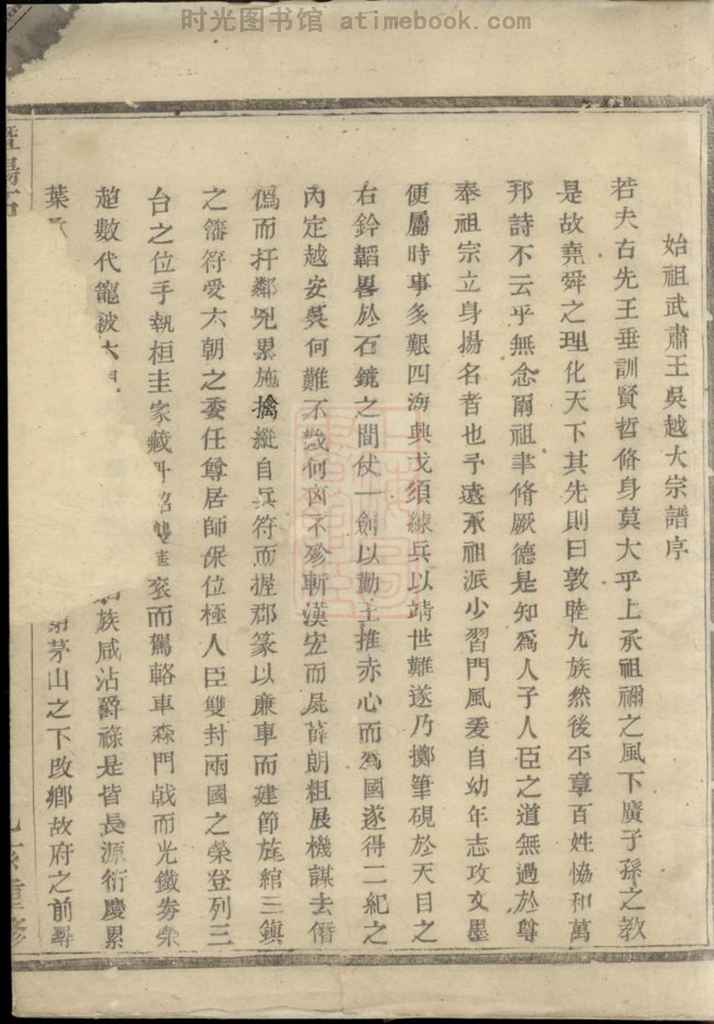 时光图书馆 atimebook.com
始祖武肅王吳越大宗譜序
若夫古先王垂訓賢哲脩身莫大乎上承祖禰之風下廣子孫之教
是故堯舜之理化天下其先則曰敦睦九族然後平章百姓恊和萬
邦詩不云乎無念爾祖聿脩厥德是知爲人子人臣之道無過於尊
奉祖宗立身揚名者也予遠承祖派少習門風爰自幼年志攻文墨
便屬時事多艱四海興戈須練兵以靖世難遂乃擲筆硯於天目之
右鈐韜畧於石鏡之間仗一劍以勤王推赤心而爲國遂得二紀之
內定越安吳何難不戡何凶不殄斬漢宏而屍薛朗粗展機謀去僭
僞而扞鄰兇累施擒縱自兵符而握郡篆以廉車而建節旄綰三鎮
之籓符受六朝之委任尊居師保位極人臣雙封兩國之榮登列三
台之位手執桓圭家藏丹詔雙 袞而駕輅車森門戟而光鐵券榮
超數代寵被六 族咸沾爵祿是皆長源衍慶累
葉 茅山之下改鄉故府之前尋
重修